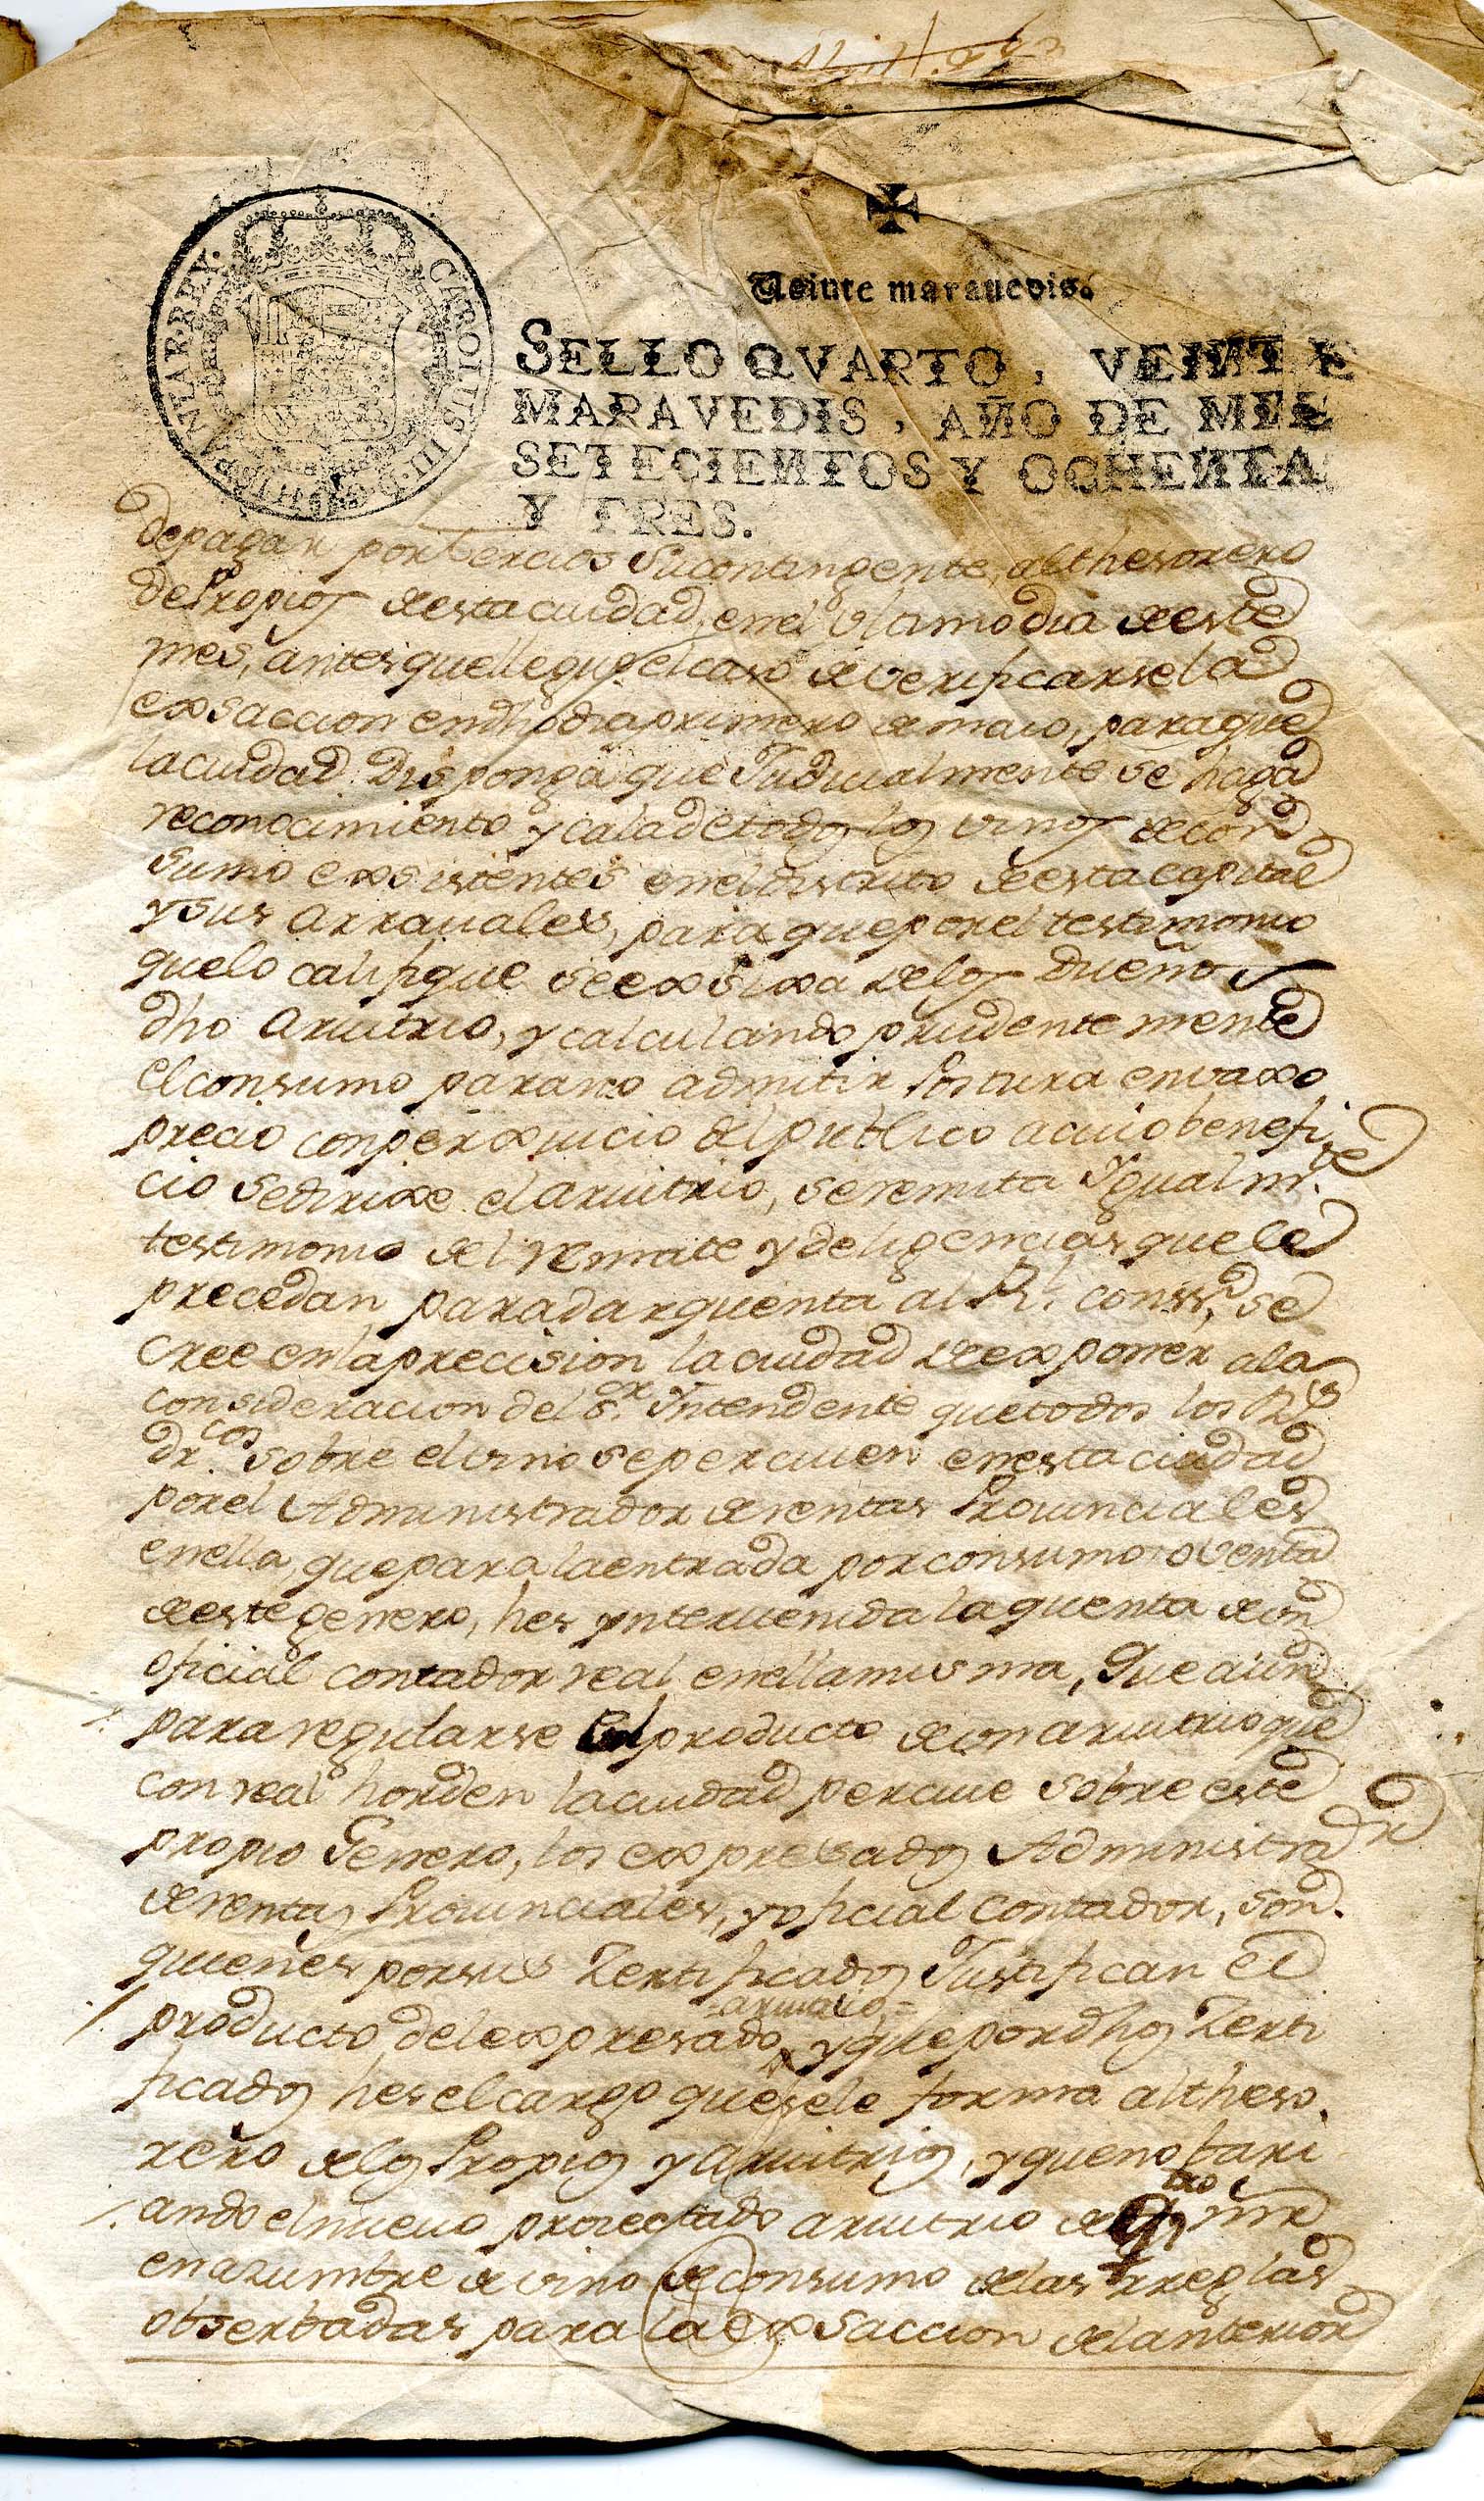 CAROLUS III. D. G. HISPANIAR. REY.
Veinte maravedis.
SELLO QVARTO, VEINTE
MARAVEDIS, AÑO DE MIL
SETECIENTOS Y OCHENTA
Y TRES.
de pagar por tercios su contingente, al thesorero
de Propios de esta ciudad, en el vltimo dia de este
mes, antes que llegue el caso de verificarse la
exsaccion en dho dia primero de maio, para que
la ciudad Disponga que Judicialmente se haga
reconocimiento y cala de todos los vinos de con
sumo exsistentes en el distrito de esta capital
y sus arrauales, para que por el testimonio
que lo califique se exsixa de los Dueños
dho Aruitrio, y calculando prudentemente
el consumo para no admitir Postura en vaxo
precio con perxuicio del publico a cuio benefi
cio se dirixe el aruitrio, se remita Ygualm.te
testimonio del remate y deligencias que le
precedan para dar quenta al Rl. consejo. se
cree en la precision la ciudad de exponer a la
consideracion del Sr. Yntendente que todos los Rs
dr.cos sobre el vino se perciuen en esta ciudad
por el Administrador de rentas Prouinciales
en ella, que para la entrada por consumo o venta
de este genero, hes ynteruenida la quenta de vn
oficial contador real en ella misma, Que aun
para regularse el producto de vn aruitrio que
con real horden la ciudad perciue sobre este
propio Genero, los expresados Administrad.r
de rentas Prouinciales, y oficial contador, son
quienes por sus Zertificados Justifican el
=aruitrio=
producto del expresado y que por dhos Zerti
ficados hes el cargo que se le forma al theso
rero de los Propios y Aruitrios, y que no bari
ando el nueuo proiectado aruitrio de mr
en azumbre de vino de consumo de las rreglas
obserbadas para la exsaccion del anterior